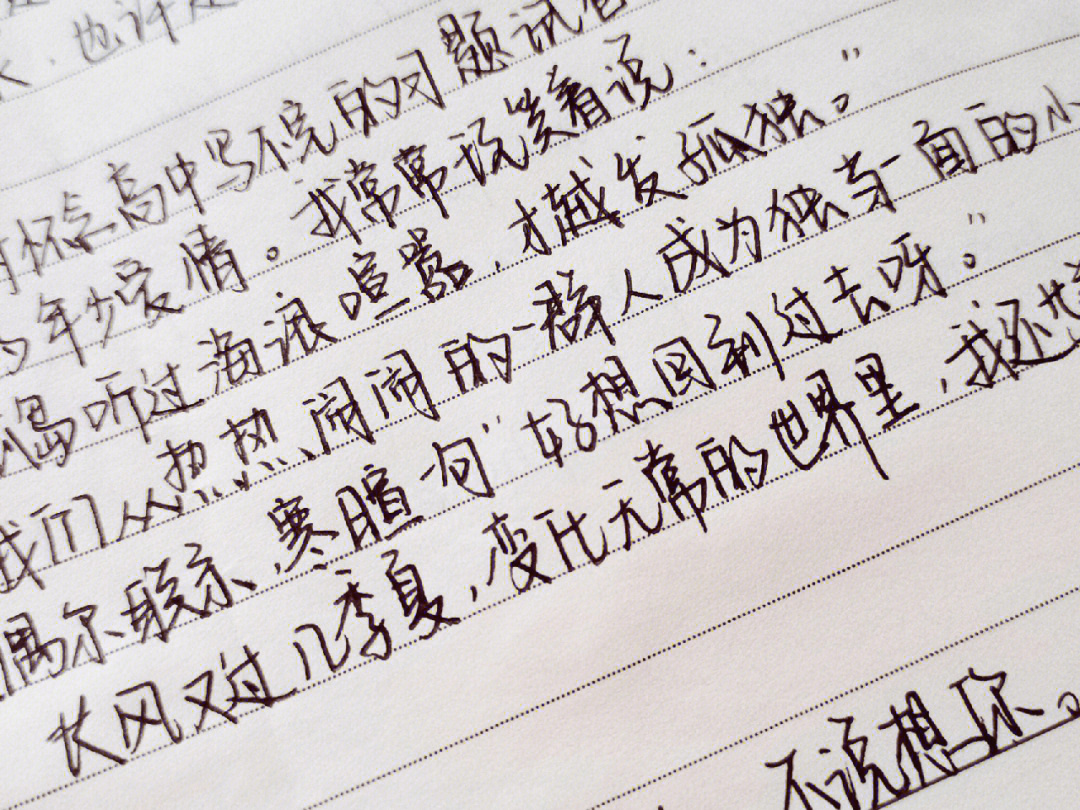 也许是
怀念高中写不完的习题试卷
年少爱情。我常常说笑着说：
岛听过海浪喧嚣，才越发孤独。”
我们从热热闹闹的一群人成为独当一面的小
偶尔联系、寒暄句“好想回到过去呀。”
长风又过几季夏，变化无常的世界里，我还
不说想你。